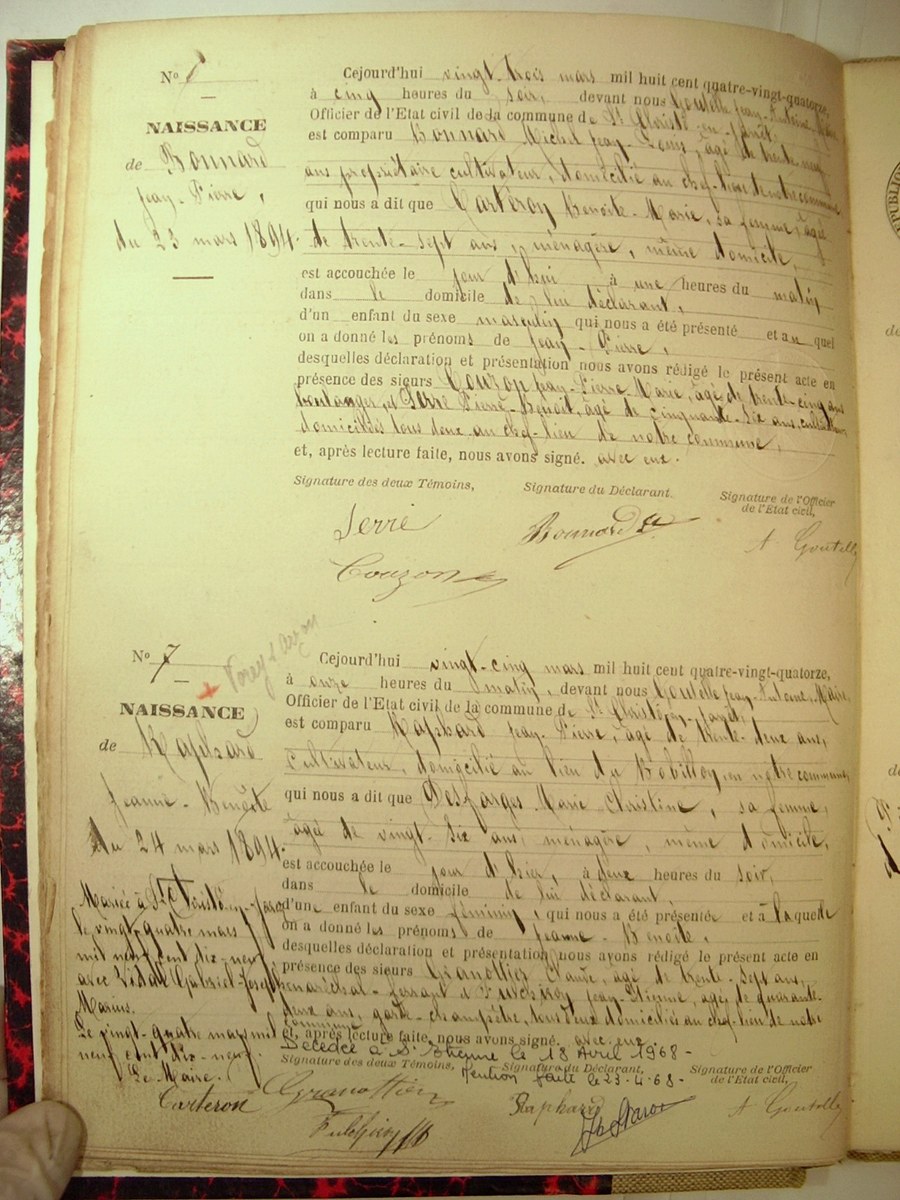 No
NAISSANCE
de Bonnard
Jean-Pierre,
du 23 mars 1894.
Cejourd'hui vingt-trois mars mil huit cent quatre-vingt-quatorze,
à cinq heures du soir, devant nous Goutelle Jean-Antoine, Maire
Officier de l'Etat civil de la commune de St Christô-en-Jarêt,
est comparu Bonnard Michel Jean-Louis, âgé de trente-neuf
ans propriétaire cultivateur, domicilié au chef-lieu de notre commune
qui nous a dit que Cartéron Benoîte-Marie, sa femme, âgée
de trente-sept ans, ménagère, même domicile,
est accouchée le jour d'hui à une heures du matin
dans le domicile de lui déclarant,
d'un enfant du sexe masculin qui nous a été présenté et au quel
on a donné les prénoms de Jean-Pierre,
desquelles déclaration et présentation nous avons rédigé le présent acte en
présence des sieurs Couzon Jean-Pierre-Marie, âgé de trente-cinq ans
boulanger, et Serre Pierre-Benoît, âgé de cinquante-six ans, cultivateur,
domiciliés tous deux au chef-lieu de notre commune,
et, après lecture faite, nous avons signé. avec eux.
Signature des deux Témoins, Signature du Déclarant. Signature de l'Officier
de l'Etat civil,
Serre Bonnard A Goutelle
Couzon
No 7
NAISSANCE
de Raphard
Jeanne-Benoîte
du 24 mars 1894.
Cejourd'hui vingt-cinq mars mil huit cent quatre-vingt-quatorze,
à onze heures du matin, devant nous Goutelle Jean-Antoine, Maire,
Officier de l'Etat civil de la commune de St Christô-en-Jarêt,
est comparu Raphard Jean-Pierre, âgé de trente-deux ans,
cultivateur, domicilié au lieu du Bobillon, en notre commune,
qui nous a dit que Desfarges Marie Christine, sa femme,
âgée de vingt-six ans, ménagère, même domicile,
est accouchée le jour d'hier, à deux heures du soir,
dans le domicile de lui déclarant,
d'une enfant du sexe féminin, qui nous a été présentée et à laquelle
on a donné les prénoms de Jeanne-Benoîte,
desquelles déclaration et présentation nous avons rédigé le présent acte en
présence des sieurs Granottier Claude, âgé de trente-sept ans,
maréchal-ferrant et Fulchiron Jean-Etienne, âgé de quarante-
deux ans, garde-champêtre, tous deux domiciliés au chef-lieu de notre
commune
et, après lecture faite, nous avons signé. avec eux.
Mariée à St Christô-en-Jarez
le vingt-quatre mars
mil neuf cent dix-neuf
avec Vidal Gabriel-Joseph
Marius.
Le vingt-quatre mars mil
neuf cent dix-neuf.
Le Maire.
Carteron
Décédée à St Etienne le 18 Avril 1968-
Signature des deux Témoins, Signature du Déclarant, Signature de l'Officier
de l'Etat civil,
Mention faite le 23-4-68-
Granottier Raphard A Goutelle
Fulchiron